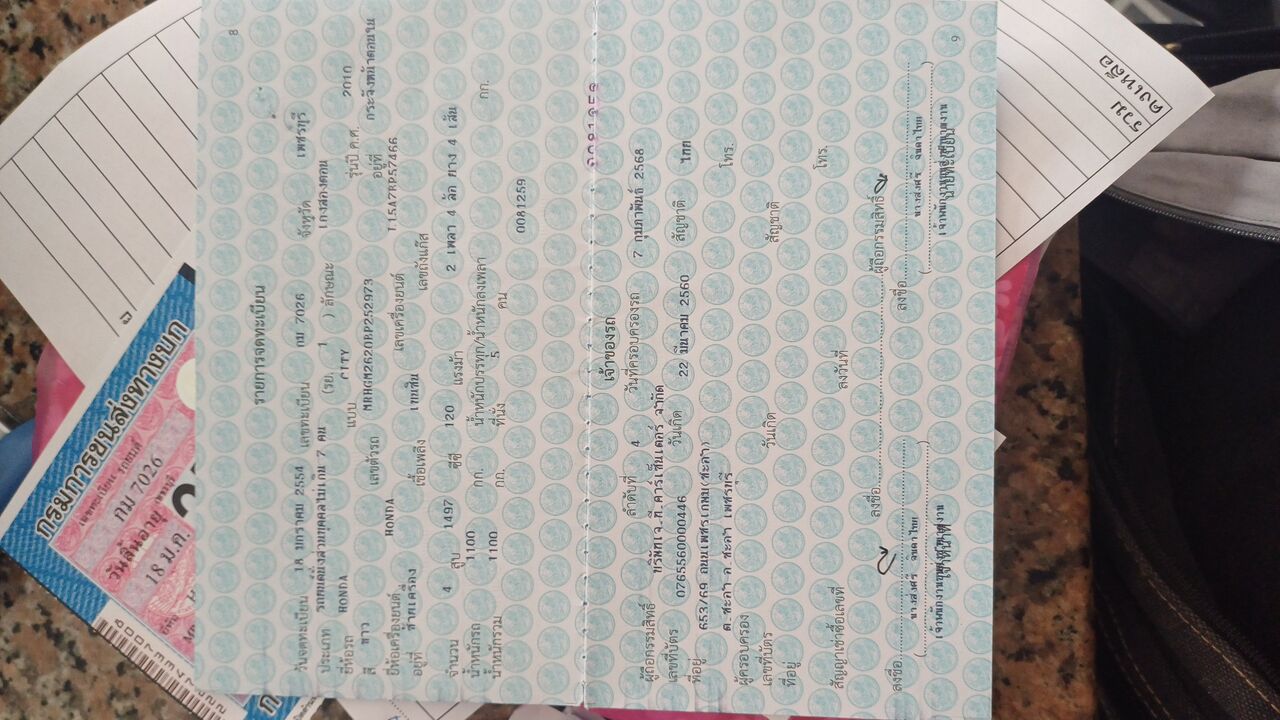 8
รายการจดทะเบียน
วันจดทะเบียน 18 มกราคม 2554 เลขทะเบียน กม 7026 จังหวัด เพชรบุรี
ประเภท รถยนต์นั่งส่วนบุคคลไม่เกิน 7 คน (รย. 1 ) ลักษณะ เก๋งสองตอน
ยี่ห้อรถ HONDA แบบ CITY รุ่นปี ค.ศ. 2010
สี ขาว เลขตัวรถ อยู่ที่ กระจังหน้าตอนใน
ยี่ห้อเครื่องยนต์ HONDA เลขเครื่องยนต์
อยู่ที่ ซ้ายเครื่อง เชื้อเพลิง เบนซิน เลขถังแก๊ส
จำนวน 4 สูบ 1497 ซีซี 120 แรงม้า 2 เพลา 4 ล้อ ยาง 4 เส้น
น้ำหนักรถ 1100 กก. น้ำหนักบรรทุก/น้ำหนักลงเพลา กก.
น้ำหนักรวม 1100 กก. ที่นั่ง 5 คน
0081259
เจ้าของรถ
ลำดับที่ 4 วันที่ครอบครองรถ 7 กุมภาพันธ์ 2568
ผู้ถือกรรมสิทธิ์ บริษัท จ.ที.คาร์เซ็นเตอร์ จำกัด
เลขที่บัตร 0765560000446 วันเกิด 22 มีนาคม 2560 สัญชาติ ไทย
ที่อยู่ 653/69 ถนนเพชรเกษม(ชะอำ)
ต.ชะอำ อ.ชะอำ เพชรบุรี โทร.
ผู้ครอบครอง
เลขที่บัตร วันเกิด สัญชาติ
ที่อยู่
โทร.
สัญญาเช่าซื้อเลขที่ ลงวันที่
ลงชื่อ ผู้ถือกรรมสิทธิ์
ลงชื่อ ลงชื่อ
เจ้าหน้าที่ นายทะเบียน
9
กรมการขนส่งทางบก
กม 7026
วันสิ้นอายุ
18 ม.ค.
รวม
คงเหลือ